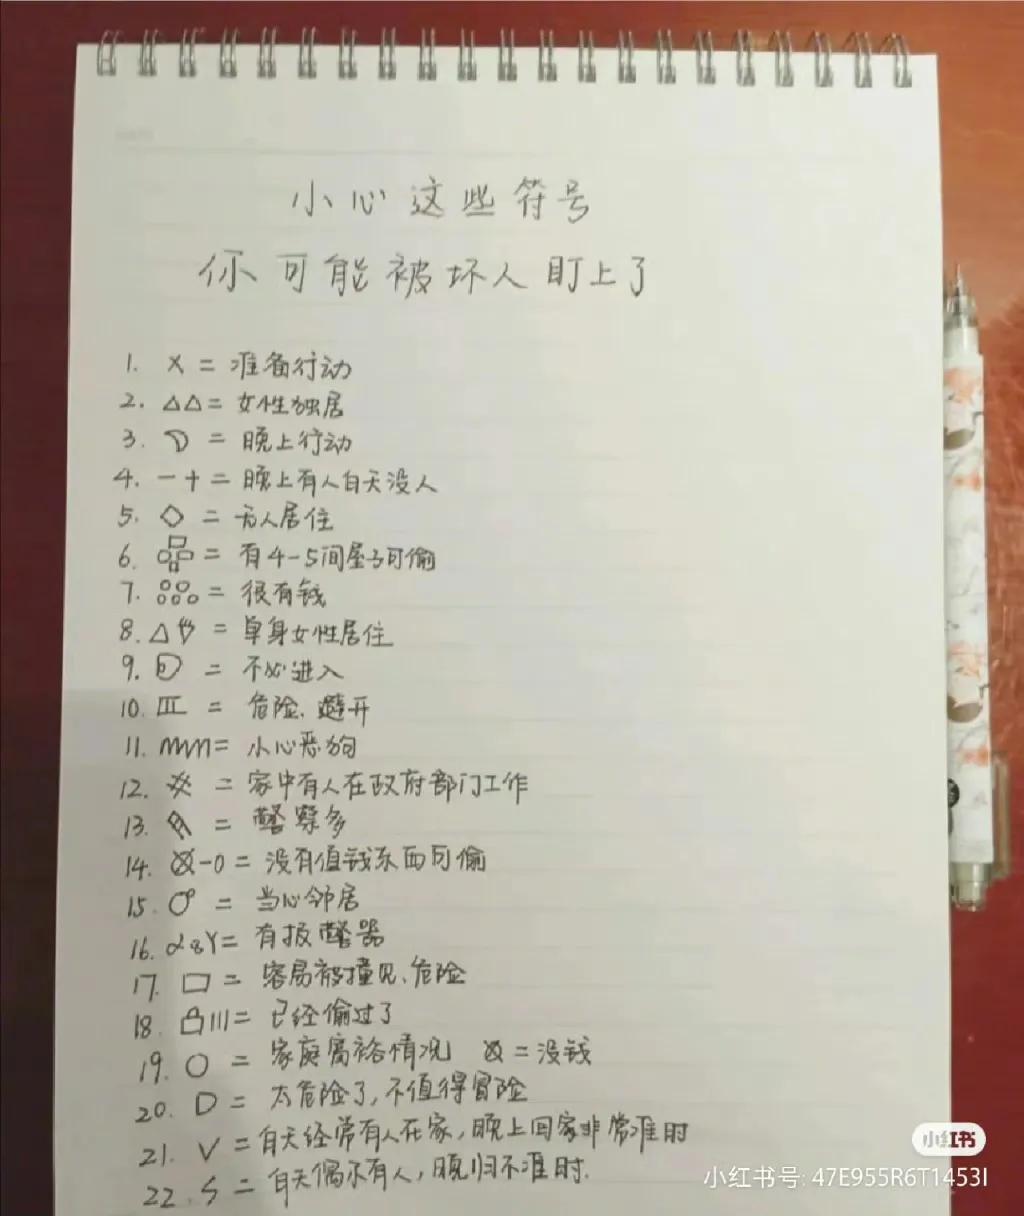 小心这些符号
你可能被坏人盯上了
1. × = 准备行动
2. △△ = 女性独居
3. = 晚上行动
4. - + = 晚上有人白天没人
5. ◇ = 无人居住
6. = 有4-5间屋子可偷
7. = 很有钱
8. △ = 单身女性居住
9. = 不必进入
10. = 危险、避开
11. = 小心恶狗
12. = 家中有人在政府部门工作
13. = 警察多
14. -0 = 没有值钱东西可偷
15. = 当心邻居
16. α8Y = 有报警器
17. □ = 容易被撞见、危险
18. = 已经偷过了
19. ○ = 家庭富裕情况 = 没钱
20. D = 太危险了,不值得冒险
21. V = 白天经常有人在家,晚上回家非常准时
22. S = 白天偶尔有人,晚归不准时.
小红书
小红书号: 47E955R6T1453I